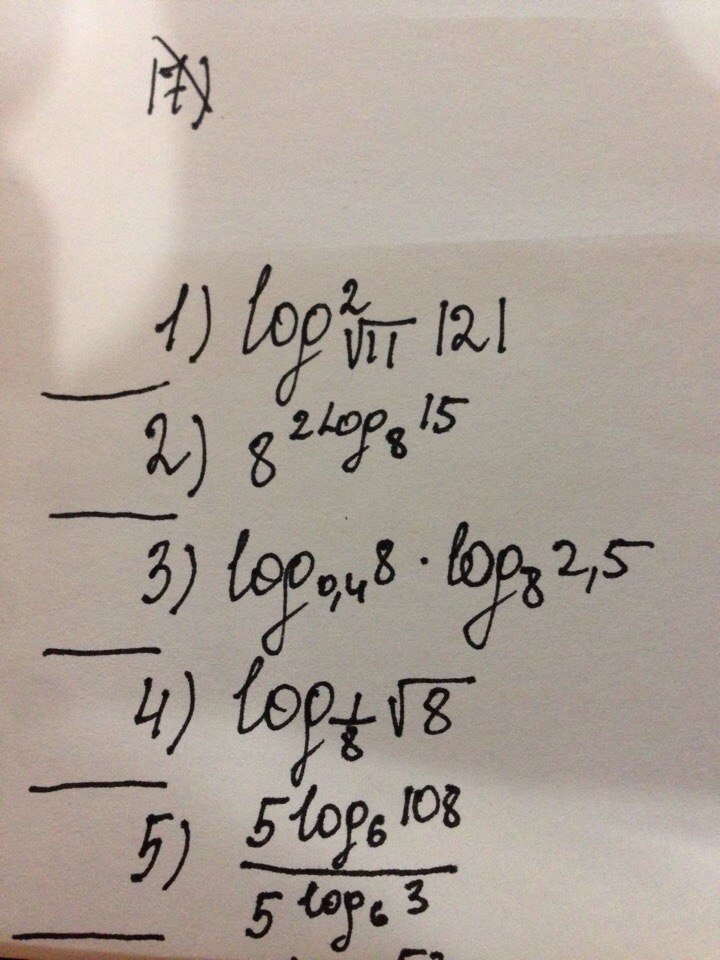 17)
1) log²_√11 121
2) 8^(2log_8 15)
3) log_0,4 8 · log_8 2,5
4) log_1/8 √8
5) 5log_6 108
5 log_6 3